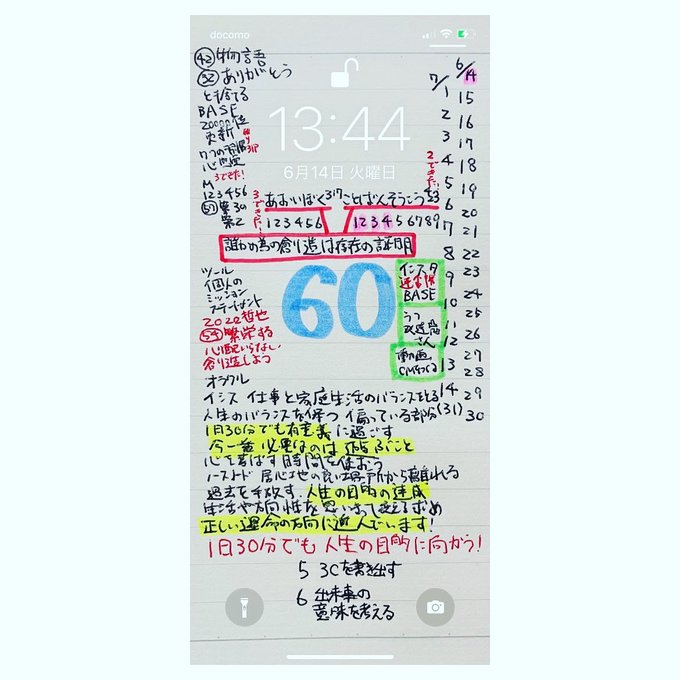 docomo
13:44
6月14日 火曜日
㊷物語
㉜ありがとう
と捨てる
BASE
20000位
更新
7つの習慣
3できた!
M
123456
2できた!
3できた!
あおいぼく317ことばんそうこう43
123456
123456789
誰かの為の創り造は存在の証明
60
ツール
個人の
ミッション
ステートメント
2022哲也
繁栄する
心配いらない
創り造しよう
インスタ
BASE
うつ
さん
動画
オラクル
イシス 仕事と家庭生活のバランスをとる
人生のバランスを保つ 偏っている部分
1日30分でも有意義に過ごす
今一番必要なのは遊ぶこと
心を喜ばす時間を使おう
居心地の良い場所から離れる
過去を手放す 人生の目的の達成
正しい運命の方向に進んでいます!
1日30分でも人生の目的に向かう!
5 3Cを書き出す
6 出来事の
意味を考える
7/1
2
3
4
5
6
7
8
9
10
11
12
13
14
(31)
6/14
15
16
17
18
19
20
21
22
23
24
25
26
27
28
29
30